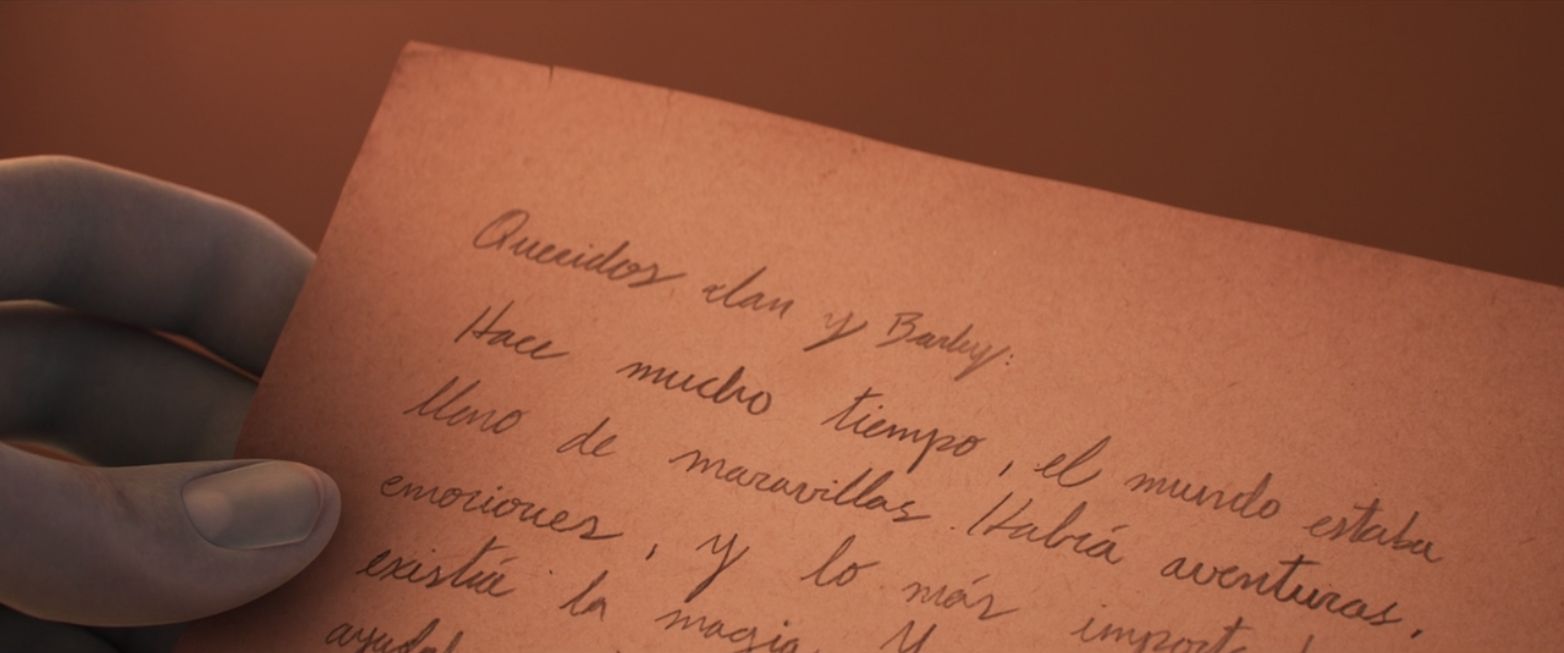 Queridos Ian y Barley:
Hace mucho tiempo, el mundo estaba
lleno de maravillas. Había aventuras,
emociones, y lo más
existía la magia. Y